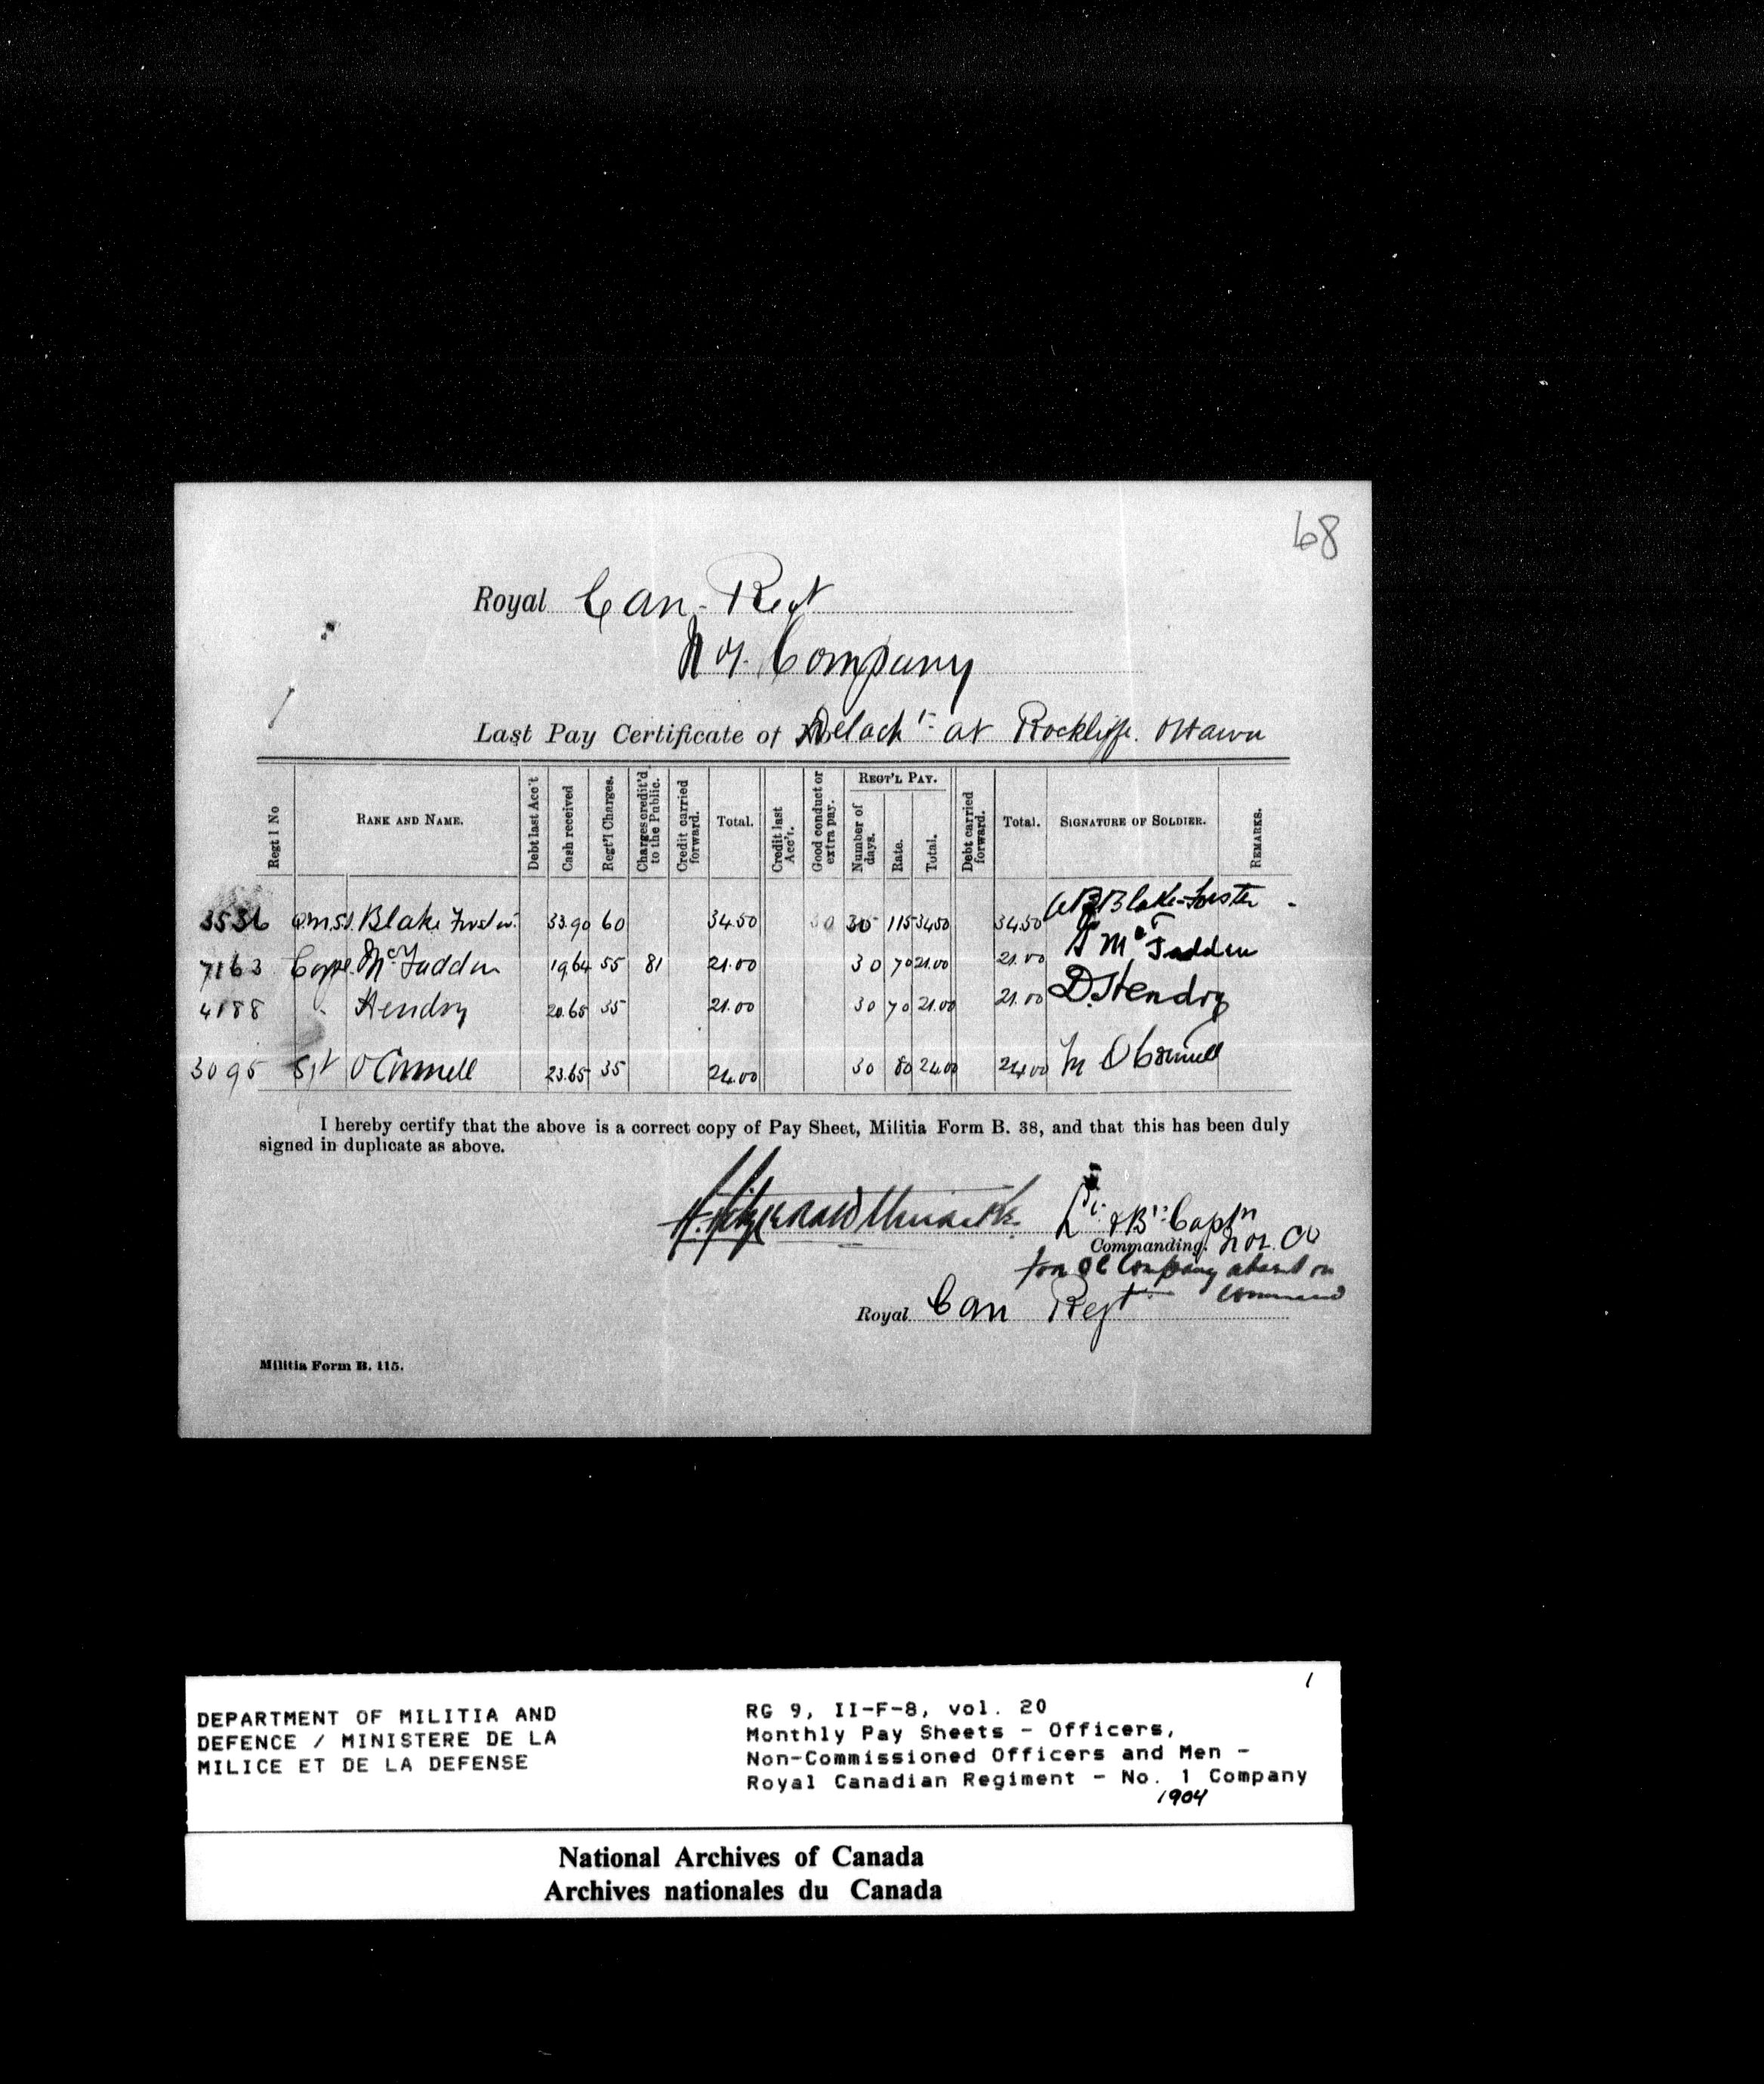 68
Royal Can. Regt
No 1. Company
Last Pay Certificate of Detach't at Rockliffe. Ottawa
Regt'l No RANK AND NAME. Debt last Acc't Cash received Regt'l Charges. Charges credit'd to the Public. Credit carried forward. Total. Credit last Acc't. Good conduct or extra pay. REGT'L PAY. Number of days. Rate. Total. Debt carried forward. Total. SIGNATURE OF SOLDIER. REMARKS.
3536 Q.M.S.I. Blake Forster. 33.90 60 34.50 30 115 34.50 34.50 Blake-Forster
7163 Corpl. McFadden 19.64 55 81 21.00 30 70 21.00 21.00 McFadden
4188 " Hendry 20.65 35 21.00 30 70 21.00 21.00 D. Hendry
3095 Sgt O'Connell 23.65 35 24.00 30 80 24.00 24.00 M O'Connell
I hereby certify that the above is a correct copy of Pay Sheet, Militia Form B. 38, and that this has been duly
signed in duplicate as above.
Lt. & Bt. Captn
Commanding. No 1. Co
for OC Company absent on
command
Royal Can Regt
Militia Form B. 115.
1
DEPARTMENT OF MILITIA AND
DEFENCE / MINISTERE DE LA
MILICE ET DE LA DEFENSE
RG 9, II-F-8, vol. 20
Monthly Pay Sheets - Officers,
Non-Commissioned Officers and Men -
Royal Canadian Regiment - No. 1 Company
1904
National Archives of Canada
Archives nationales du Canada